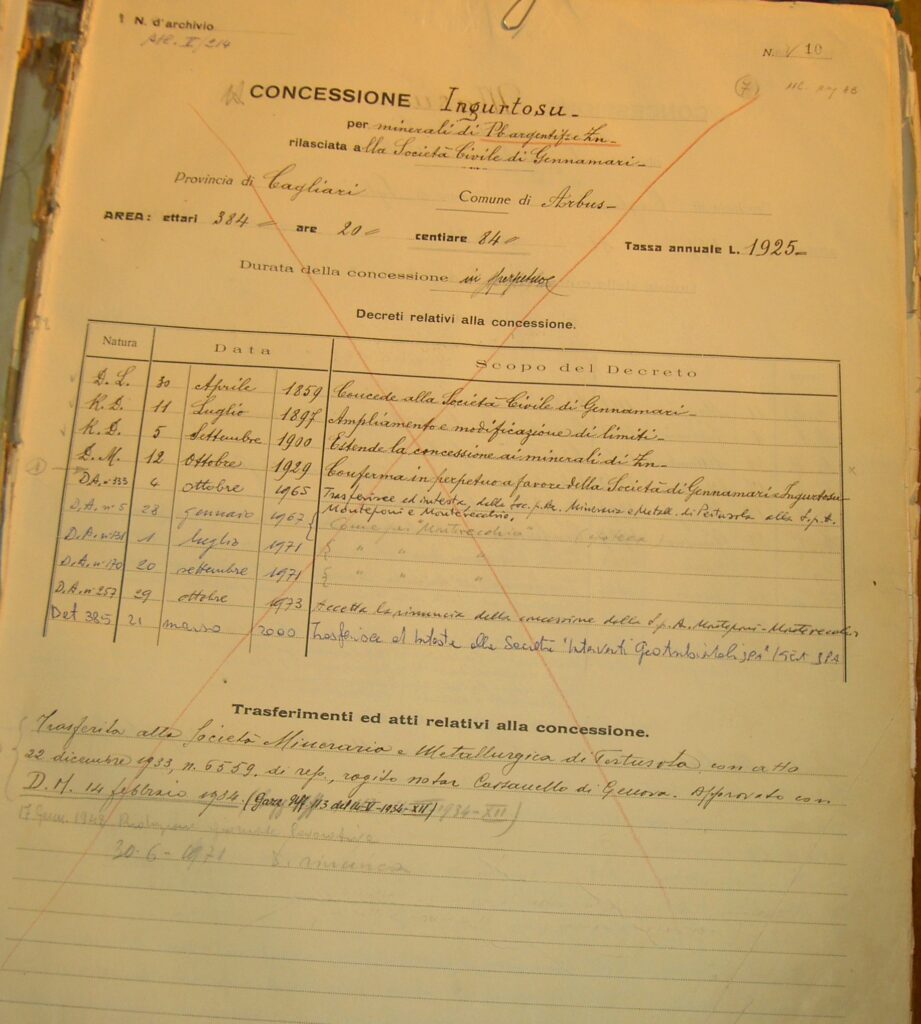 N. d'archivio
N. 10
(7)
CONCESSIONE Ingurtosu
per minerali di Pb argentif. e Zn
rilasciata alla Società Civile di Gennamari
Provincia di Cagliari Comune di Arbus
AREA: ettari 384 are 20 centiare 84 Tassa annuale L. 1925
Durata della concessione in perpetuo
Decreti relativi alla concessione.
Natura Data Scopo del Decreto
D. L. 30 Aprile 1859 Concede alla Società Civile di Gennamari
R. D. 11 Luglio 1897 Ampliamento e modificazione di limiti
R. D. 5 Settembre 1900 Estende la concessione ai minerali di Zn
D. M. 12 Ottobre 1929 Conferma in perpetuo a favore della Società di Gennamari e Ingurtosu
D.A. n° 333 4 ottobre 1965 Trasferisce ed intesta, dalla Soc. p. Az. Mineraria e Metall. di Pertusola alla S.p.A.
Monteponi e Montevecchio,
D.A. n° 5 28 gennaio 1967 Come per "Montevecchio" Ipoteca
D.A. n° 131 1 luglio 1971 " " "
D.A. n° 170 20 settembre 1971 " " "
D.A. n° 257 29 ottobre 1973 Accetta la rinuncia della concessione della S.p.A. Monteponi-Montevecchio
Det 385 21 marzo 2000 Trasferisce ed Intesta alla Società "Interventi Geo Ambientali SPA" IGEA SPA
Trasferimenti ed atti relativi alla concessione.
Trasferita alla Società Mineraria e Metallurgica di Pertusola con atto
22 dicembre 1933, n. 6559. di rep., rogito notar Cassanello di Genova. Approvato con
D. M. 14 febbraio 1934. (Gazz. Uff. 113 del 14-V-1934-XII)
30-6-1971